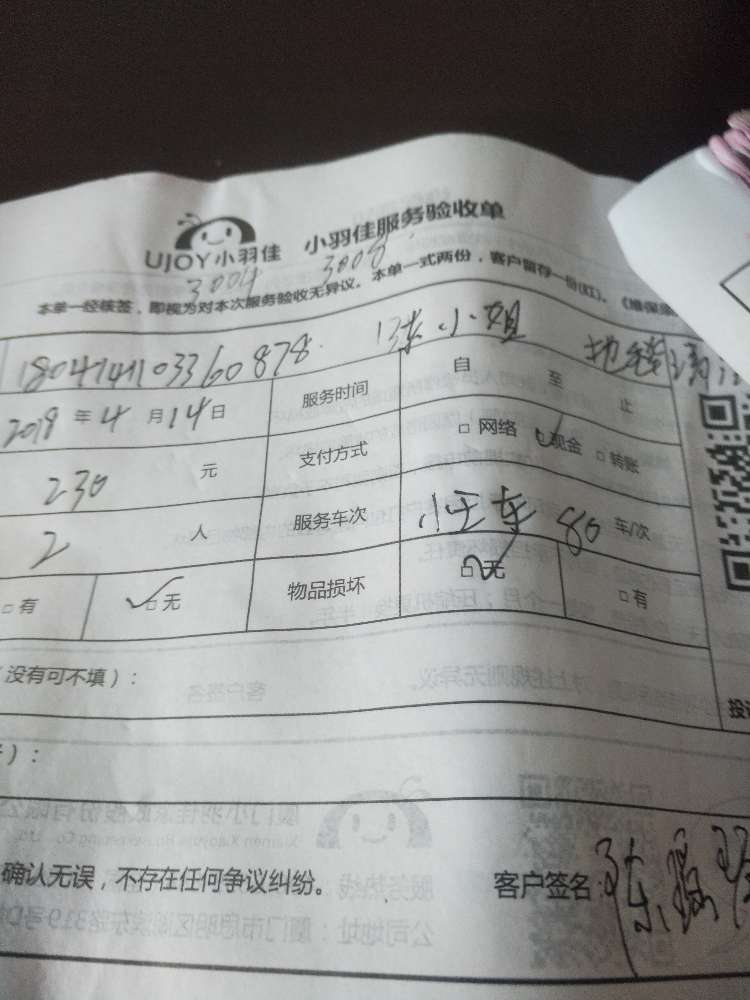 UJOY小羽佳 小羽佳服务验收单
3004 3008
本单一经核签，即视为对本次服务验收无异议。本单一式两份，客户留存一份(红)。
1804141103360878 陈小姐
2018 年 4 月 14 日 服务时间 自 至 止
230 元 支付方式 □ 网络 ☑现金 □ 转账
2 人 服务车次 小王车 80 车/次
□ 有 ☑ 无 物品损坏 ☑ 无 □ 有
没有可不填）：
）：
确认无误，不存在任何争议纠纷。 客户签名: 陈